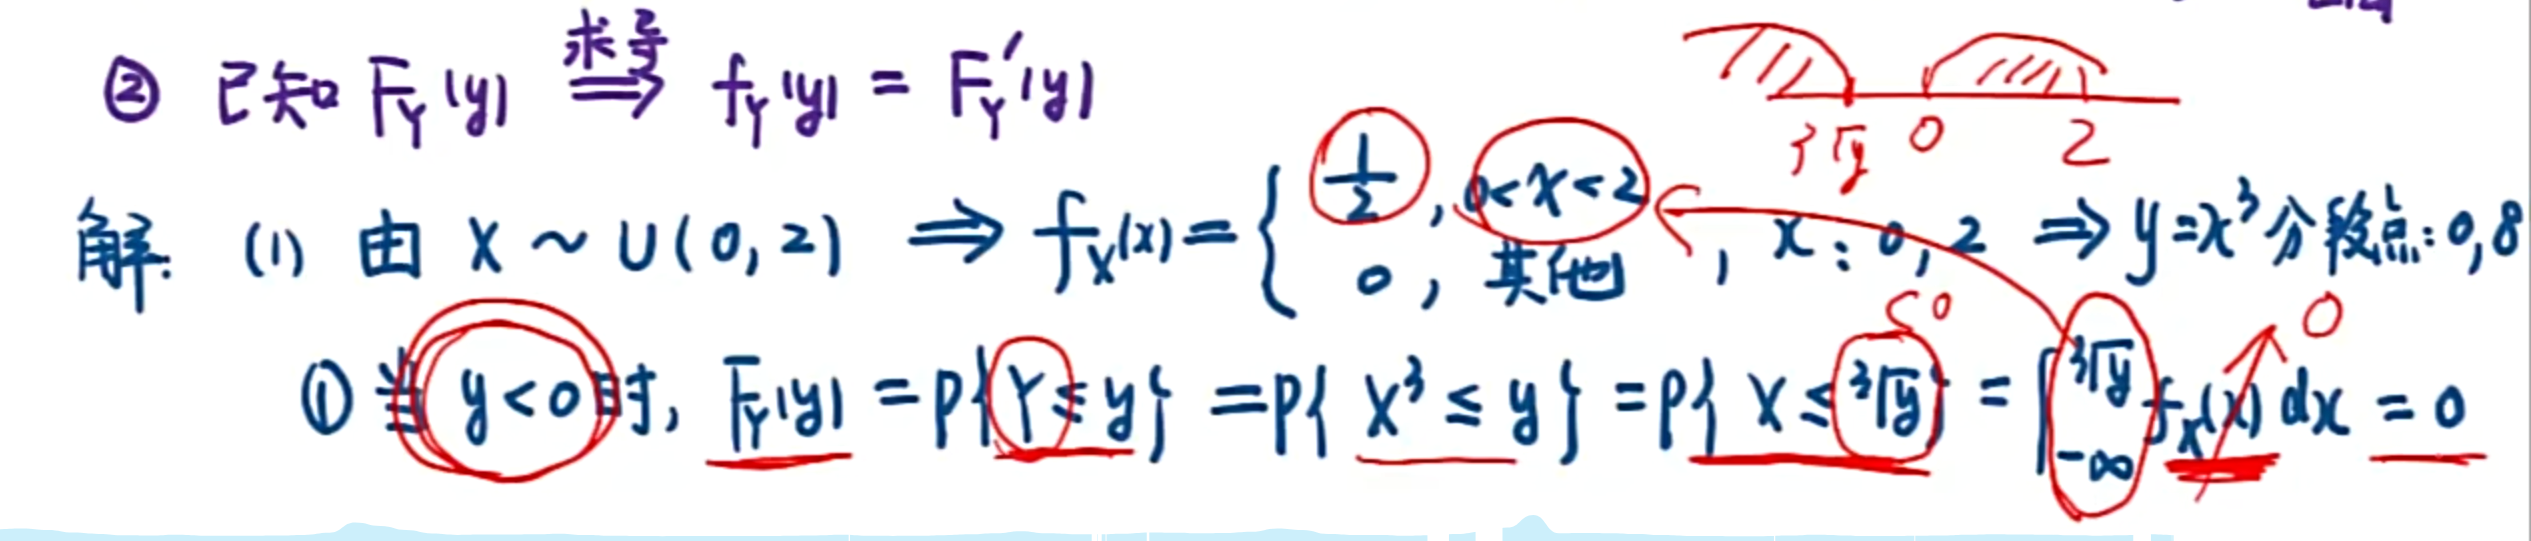 ② 已知 F_Y(y) 求导⟹ f_Y(y) = F_Y'(y)
∛y 0 2
解: (1) 由 X ~ U(0, 2) ⟹ f_X(x) = { 1/2, 0<x<2
0, 其他 , x: 0, 2 ⟹ y=x³分段点: 0,8
<0 0
① 当 y<0 时, F_Y(y) = P{Y≤y} = P{X³ ≤ y} = P{X ≤ ∛y} = ∫_{-∞}^{∛y} f_X(x) dx = 0